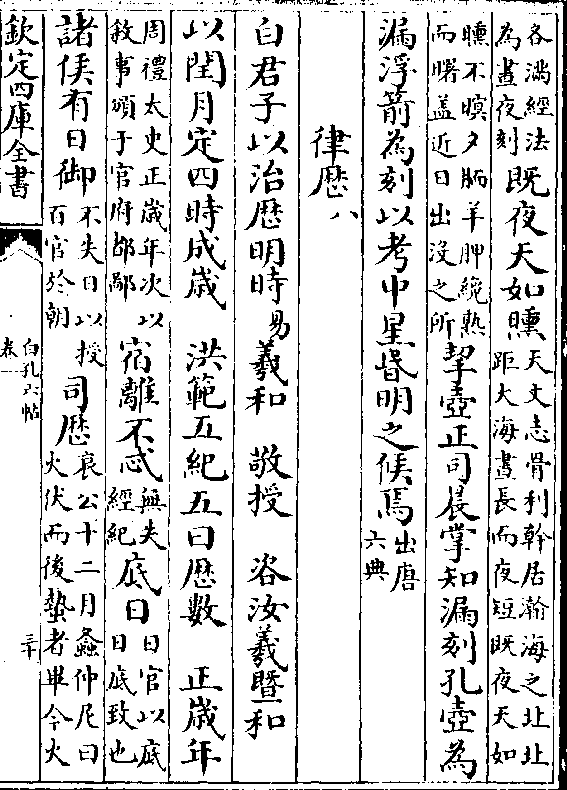 各溺經法
為晝夜刻
既夜天如曛
天文志骨利幹居瀚海之北北
距大海晝長而夜短既夜天如
曛不暝夕胹羊胛纔熟
而曙盖近日出没之所
挈壺正司晨掌知漏刻孔壺為
漏浮箭為刻以考中星昏明之候焉
出唐
六典
律歷八
白君子以治歷明時易羲和 敬授 咨汝羲暨和
以閏月定四時成歲 洪範五紀五曰歷數 正歲年
周禮太史正歲年次以
敘事頒于官府都鄙
宿離不忒
無失
經紀
底日
日官以底
日底致也
諸侯有日御
不失日以授
百官於朝
司歷
哀公十二月螽仲尼曰
火伏而後蟄者畢今火
欽定四庫全書
白孔六帖
卷一
三十